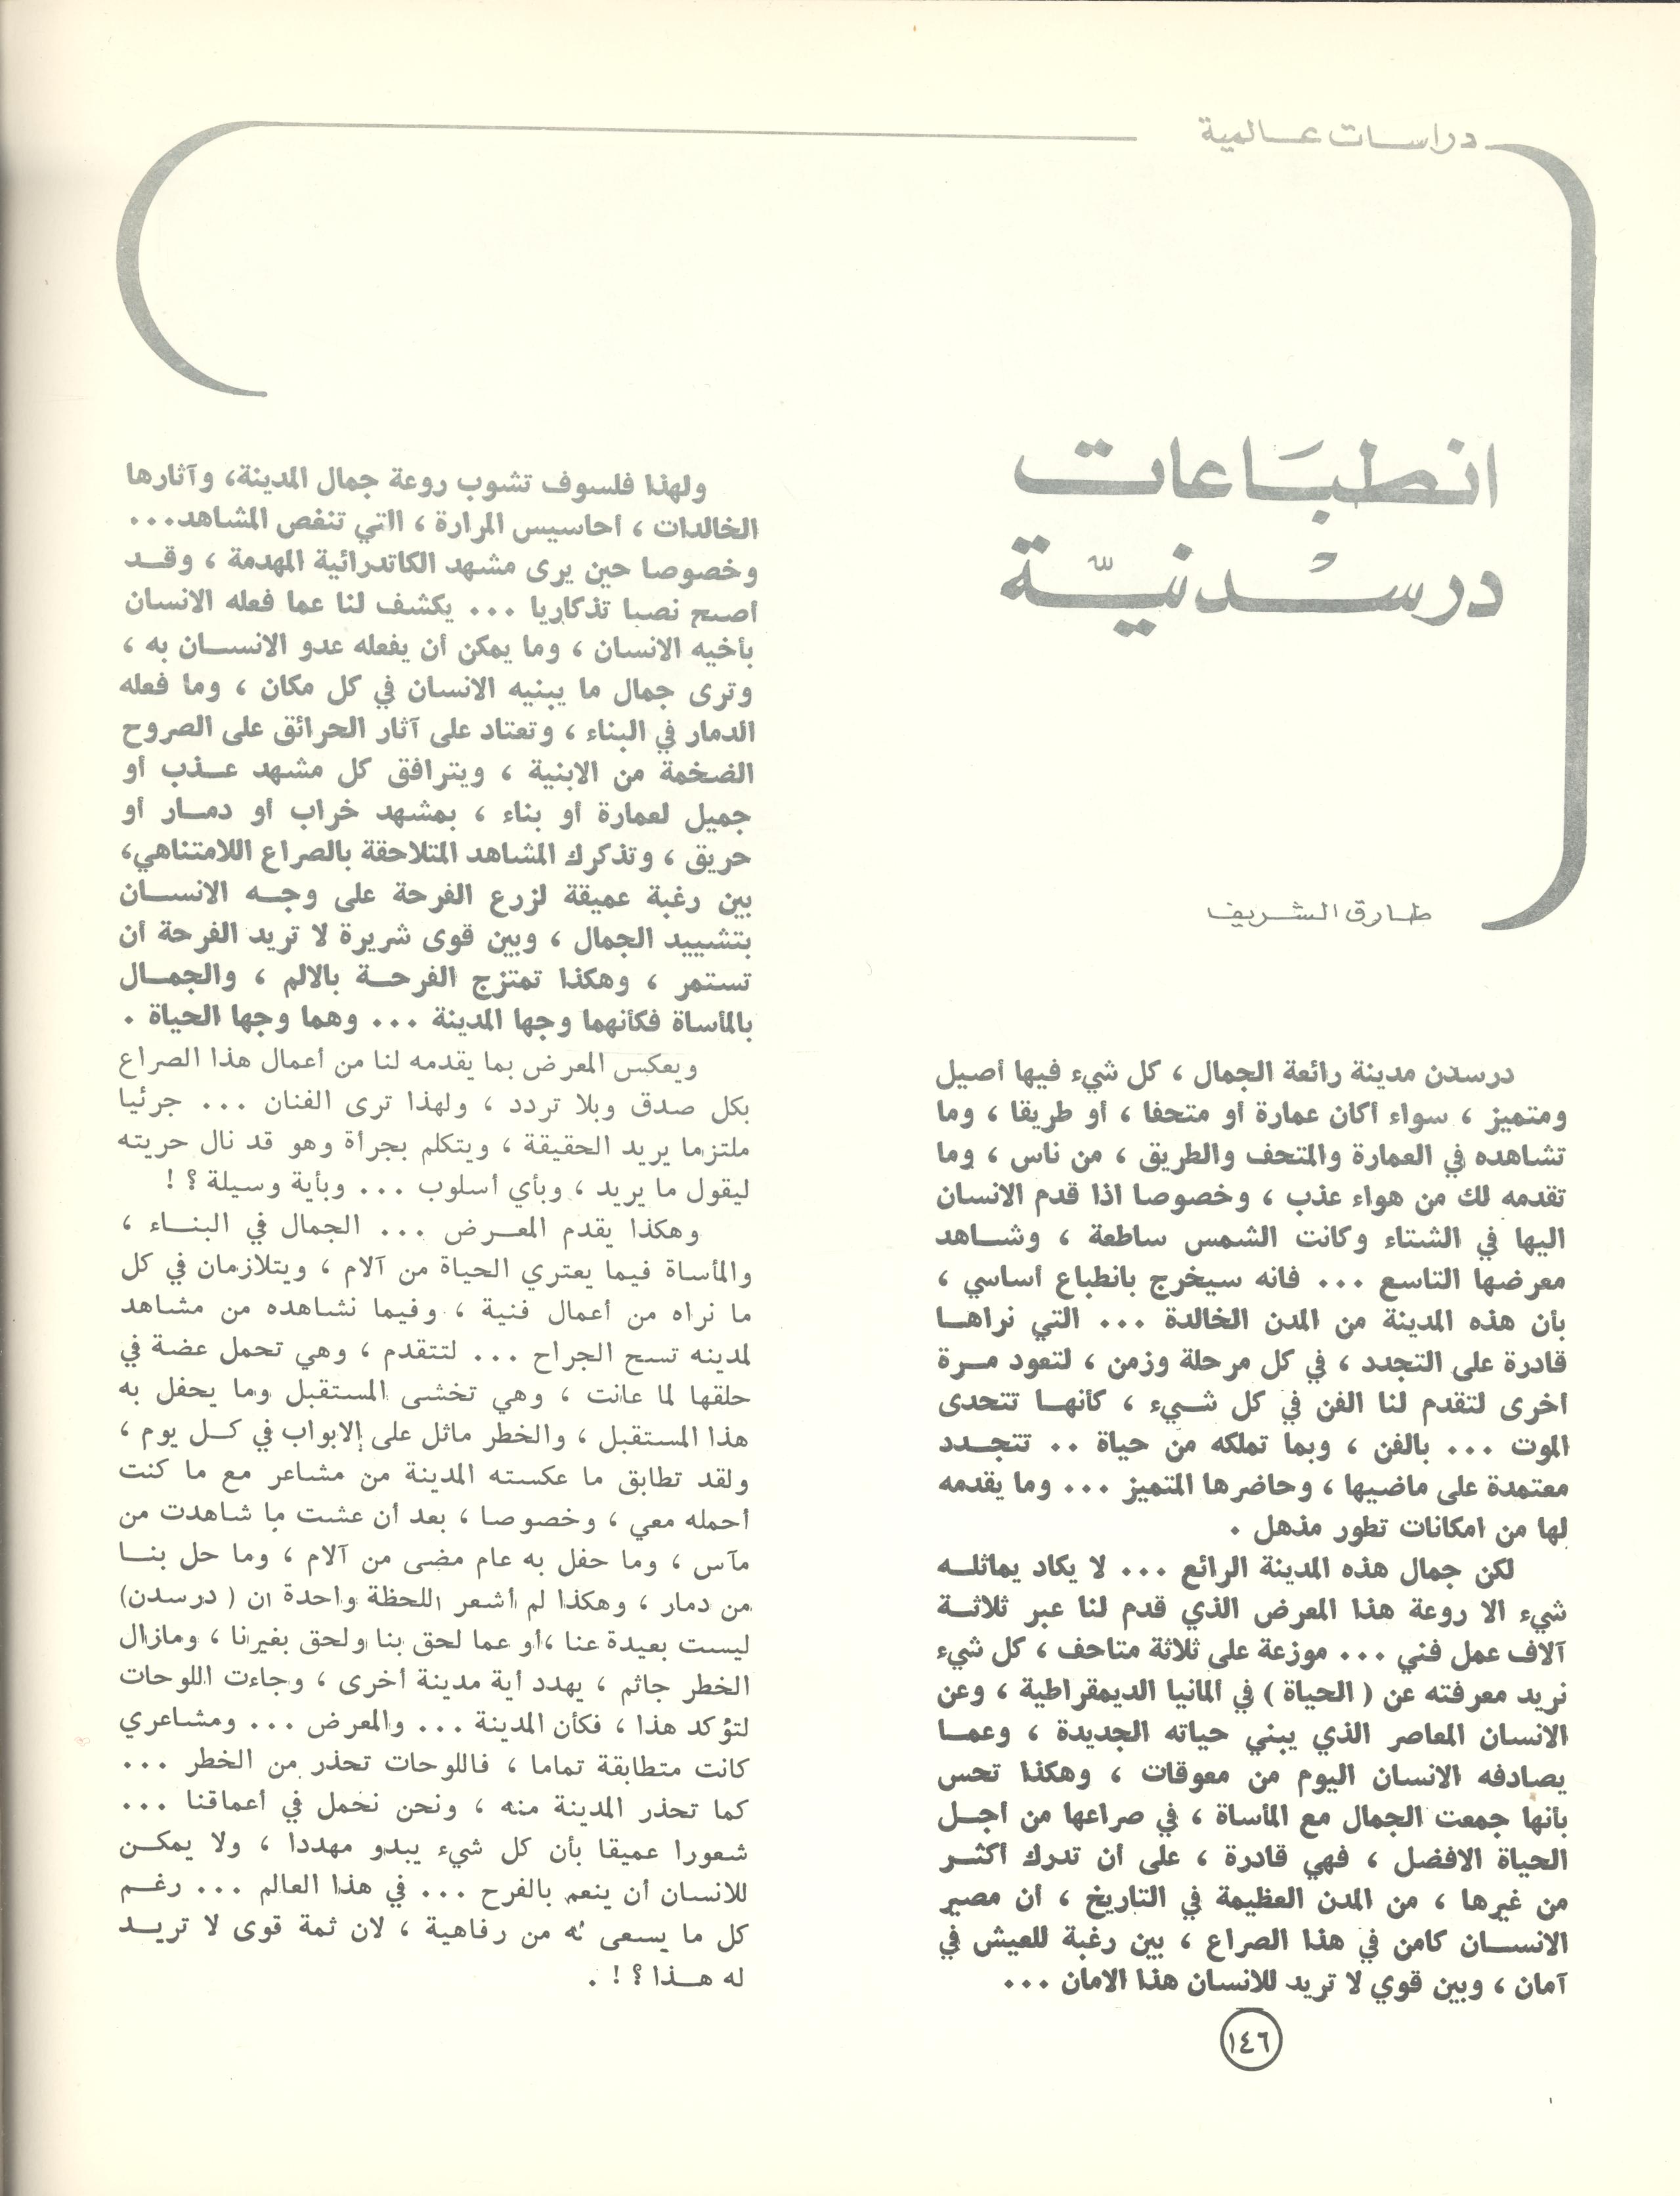 دراسات عالمية
انطبَاعات
درسْدنيّة
طارق الشريف
درسدن مدينة رائعة الجمال ، كل شيء فيها أصيل
ومتميز ، سواء أكان عمارة أو متحفا ، أو طريقا ، وما
تشاهده في العمارة والمتحف والطريق ، من ناس ، وما
تقدمه لك من هواء عذب ، وخصوصا اذا قدم الانسان
اليها في الشتاء وكانت الشمس ساطعة ، وشاهد
معرضها التاسع ... فانه سيخرج بانطباع أساسي ،
بأن هذه المدينة من المدن الخالدة ... التي نراها
قادرة على التجدد ، في كل مرحلة وزمن ، لتعود مرة
أخرى لتقدم لنا الفن في كل شيء ، كأنها تتحدى
الموت ... بالفن ، وبما تملكه من حياة .. تتجدد
معتمدة على ماضيها ، وحاضرها المتميز ... وما يقدمه
لها من امكانات تطور مذهل .
لكن جمال هذه المدينة الرائع ... لا يكاد يماثله
شيء الا روعة هذا المعرض الذي قدم لنا عبر ثلاثة
آلاف عمل فني ... موزعة على ثلاثة متاحف ، كل شيء
نريد معرفته عن ( الحياة ) في ألمانيا الديمقراطية ، وعن
الانسان المعاصر الذي يبني حياته الجديدة ، وعما
يصادفه الانسان اليوم من معوقات ، وهكذا تحس
بأنها جمعت الجمال مع المأساة ، في صراعها من أجل
الحياة الافضل ، فهي قادرة ، على أن تدرك أكثر
من غيرها ، من المدن العظيمة في التاريخ ، أن مصير
الانسان كامن في هذا الصراع ، بين رغبة للعيش في
آمان ، وبين قوي لا تريد للانسان هذا الامان ...
ولهذا فلسوف تشوب روعة جمال المدينة، وآثارها
الخالدات ، أحاسيس المرارة ، التي تنغص المشاهد...
وخصوصا حين يرى مشهد الكاتدرائية المهدمة ، وقد
أصبح نصبا تذكاريا ... يكشف لنا عما فعله الانسان
بأخيه الانسان ، وما يمكن أن يفعله عدو الانسان به ،
وترى جمال ما يبنيه الانسان في كل مكان ، وما فعله
الدمار في البناء ، وتعتاد على آثار الحرائق على الصروح
الضخمة من الابنية ، ويترافق كل مشهد عذب أو
جميل لعمارة أو بناء ، بمشهد خراب أو دمار أو
حريق ، وتذكرك المشاهد المتلاحقة بالصراع اللامتناهي،
بين رغبة عميقة لزرع الفرحة على وجه الانسان
بتشييد الجمال ، وبين قوى شريرة لا تريد الفرحة أن
تستمر ، وهكذا تمتزج الفرحة بالالم ، والجمال
بالمأساة فكأنهما وجها المدينة ... وهما وجها الحياة .
ويعكس المعرض بما يقدمه لنا من أعمال هذا الصراع
بكل صدق وبلا تردد ، ولهذا ترى الفنان ... جرئيا
ملتزما يريد الحقيقة ، ويتكلم بجرأة وهو قد نال حريته
ليقول ما يريد ، وبأي أسلوب ... وبأية وسيلة ؟ !
وهكذا يقدم المعرض ... الجمال في البناء ،
والمأساة فيما يعتري الحياة من آلام ، ويتلازمان في كل
ما نراه من أعمال فنية ، وفيما نشاهده من مشاهد
لمدينه تسح الجراح ... لتتقدم ، وهي تحمل عضة في
حلقها لما عانت ، وهي تخشى المستقبل وما يحفل به
هذا المستقبل ، والخطر ماثل على الابواب في كل يوم ،
ولقد تطابق ما عكسته المدينة من مشاعر مع ما كنت
أحمله معي ، وخصوصا ، بعد أن عشت ما شاهدت من
مآس ، وما حفل به عام مضى من آلام ، وما حل بنا
من دمار ، وهكذا لم أشعر اللحظة واحدة ان ( درسدن)
ليست بعيدة عنا ،أو عما لحق بنا ولحق بغيرنا ، ومازال
الخطر جاثم ، يهدد أية مدينة أخرى ، وجاءت اللوحات
لتؤكد هذا ، فكأن المدينة ... والمعرض ... ومشاعري
كانت متطابقة تماما ، فاللوحات تحذر من الخطر ...
كما تحذر المدينة منه ، ونحن نحمل في أعماقنا ...
شعورا عميقا بأن كل شيء يبدو مهددا ، ولا يمكن
للانسان أن ينعم بالفرح ... في هذا العالم ... رغم
كل ما يسعى له من رفاهية ، لان ثمة قوى لا تريد
له هذا ؟ ! .
١٤٦